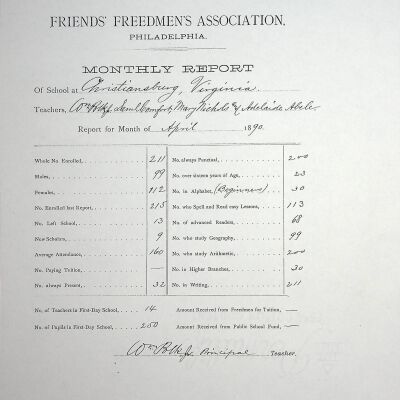 FRIENDS' FREEDMEN'S ASSOCIATION,
PHILADELPHIA.
MONTHLY REPORT
Of School at Christiansburg, Virginia.
Teachers, Wm Polk Jr. Saml Comfort, Mary Nichols & Adelaide Abeler
Report for Month of April 1890.
Whole No. Enrolled, 211
Males, 99
Females, 112
No. Enrolled last Report, 215
No. Left School, 13
New Scholars, 9
Average Attendance, 160
No. Paying Tuition, —
No. always Present, 32
No. always Punctual, 200
No. over sixteen years of Age, 23
No. in Alphabet, (Beginners) 30
No. who Spell and Read easy Lessons, 113
No. of advanced Readers, 68
No. who study Geography, 99
No. who study Arithmetic, 200
No. in Higher Branches, 30
No. in Writing, 211
No. of Teachers in First-Day School, 14
No. of Pupils in First-Day School, 250
Amount Received from Freedmen for Tuition, —
Amount Received from Public School Fund, —
Wm Polk Jr. Principal Teacher.